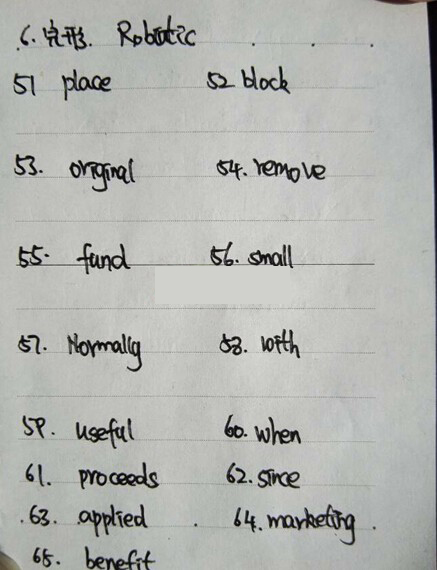 6. 完形. Robotic
51 place 52 block
53. original 54. remove
55. fund 56. small
57. Normally 58. with
59. useful 60. when
61. proceeds 62. since
63. applied 64. marketing.
65. benefit